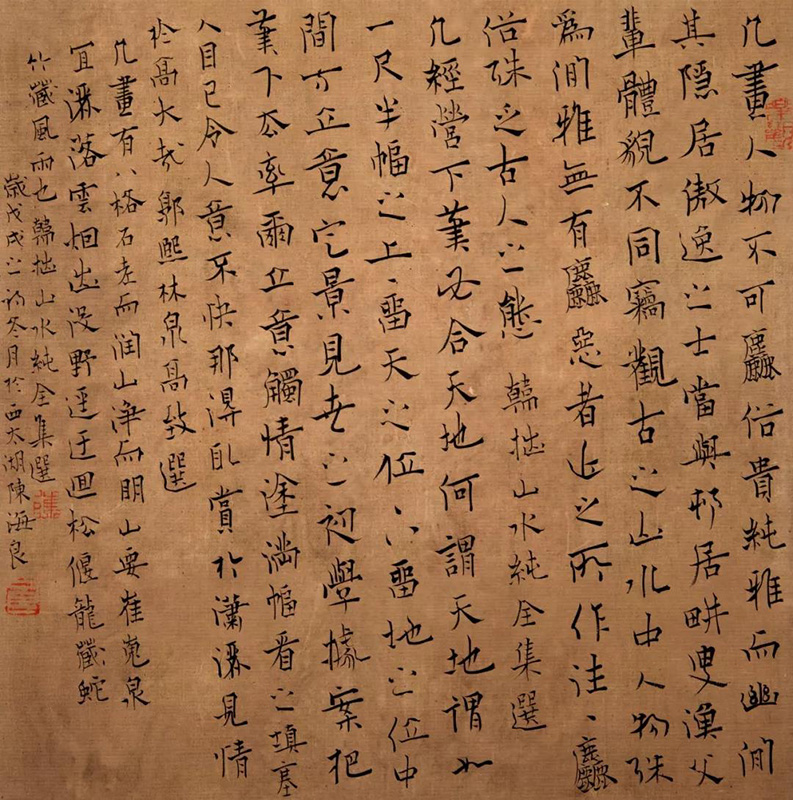 凡畫人物不可麤俗貴純雅而幽閒
其隱居傲逸之士當與邨居畊叟漁父
輩體貌不同竊觀古之山水中人物殊
爲閒雅無有麤惡者近之所作往〻麤
俗殊乏古人之態 韓拙山水純全集選
凡經營下筆必合天地何謂天地謂如
一尺半幅之上〻畱天之位下畱地之位中
間方立意定景見世之初學據案把
筆下去率爾立意觸情塗滿幅看之填塞
人目已令人意不快那得取賞於瀟灑見情
於高大哉 郭熙林泉高致選
凡畫有八格石老而潤山淨而明山要崔嵬泉
宜灑落雲烟出沒野逕迂迴松偃龍藏蛇
竹藏風雨也 韓拙山水純全集選
歲戊戌之初冬月於西太湖陳海良